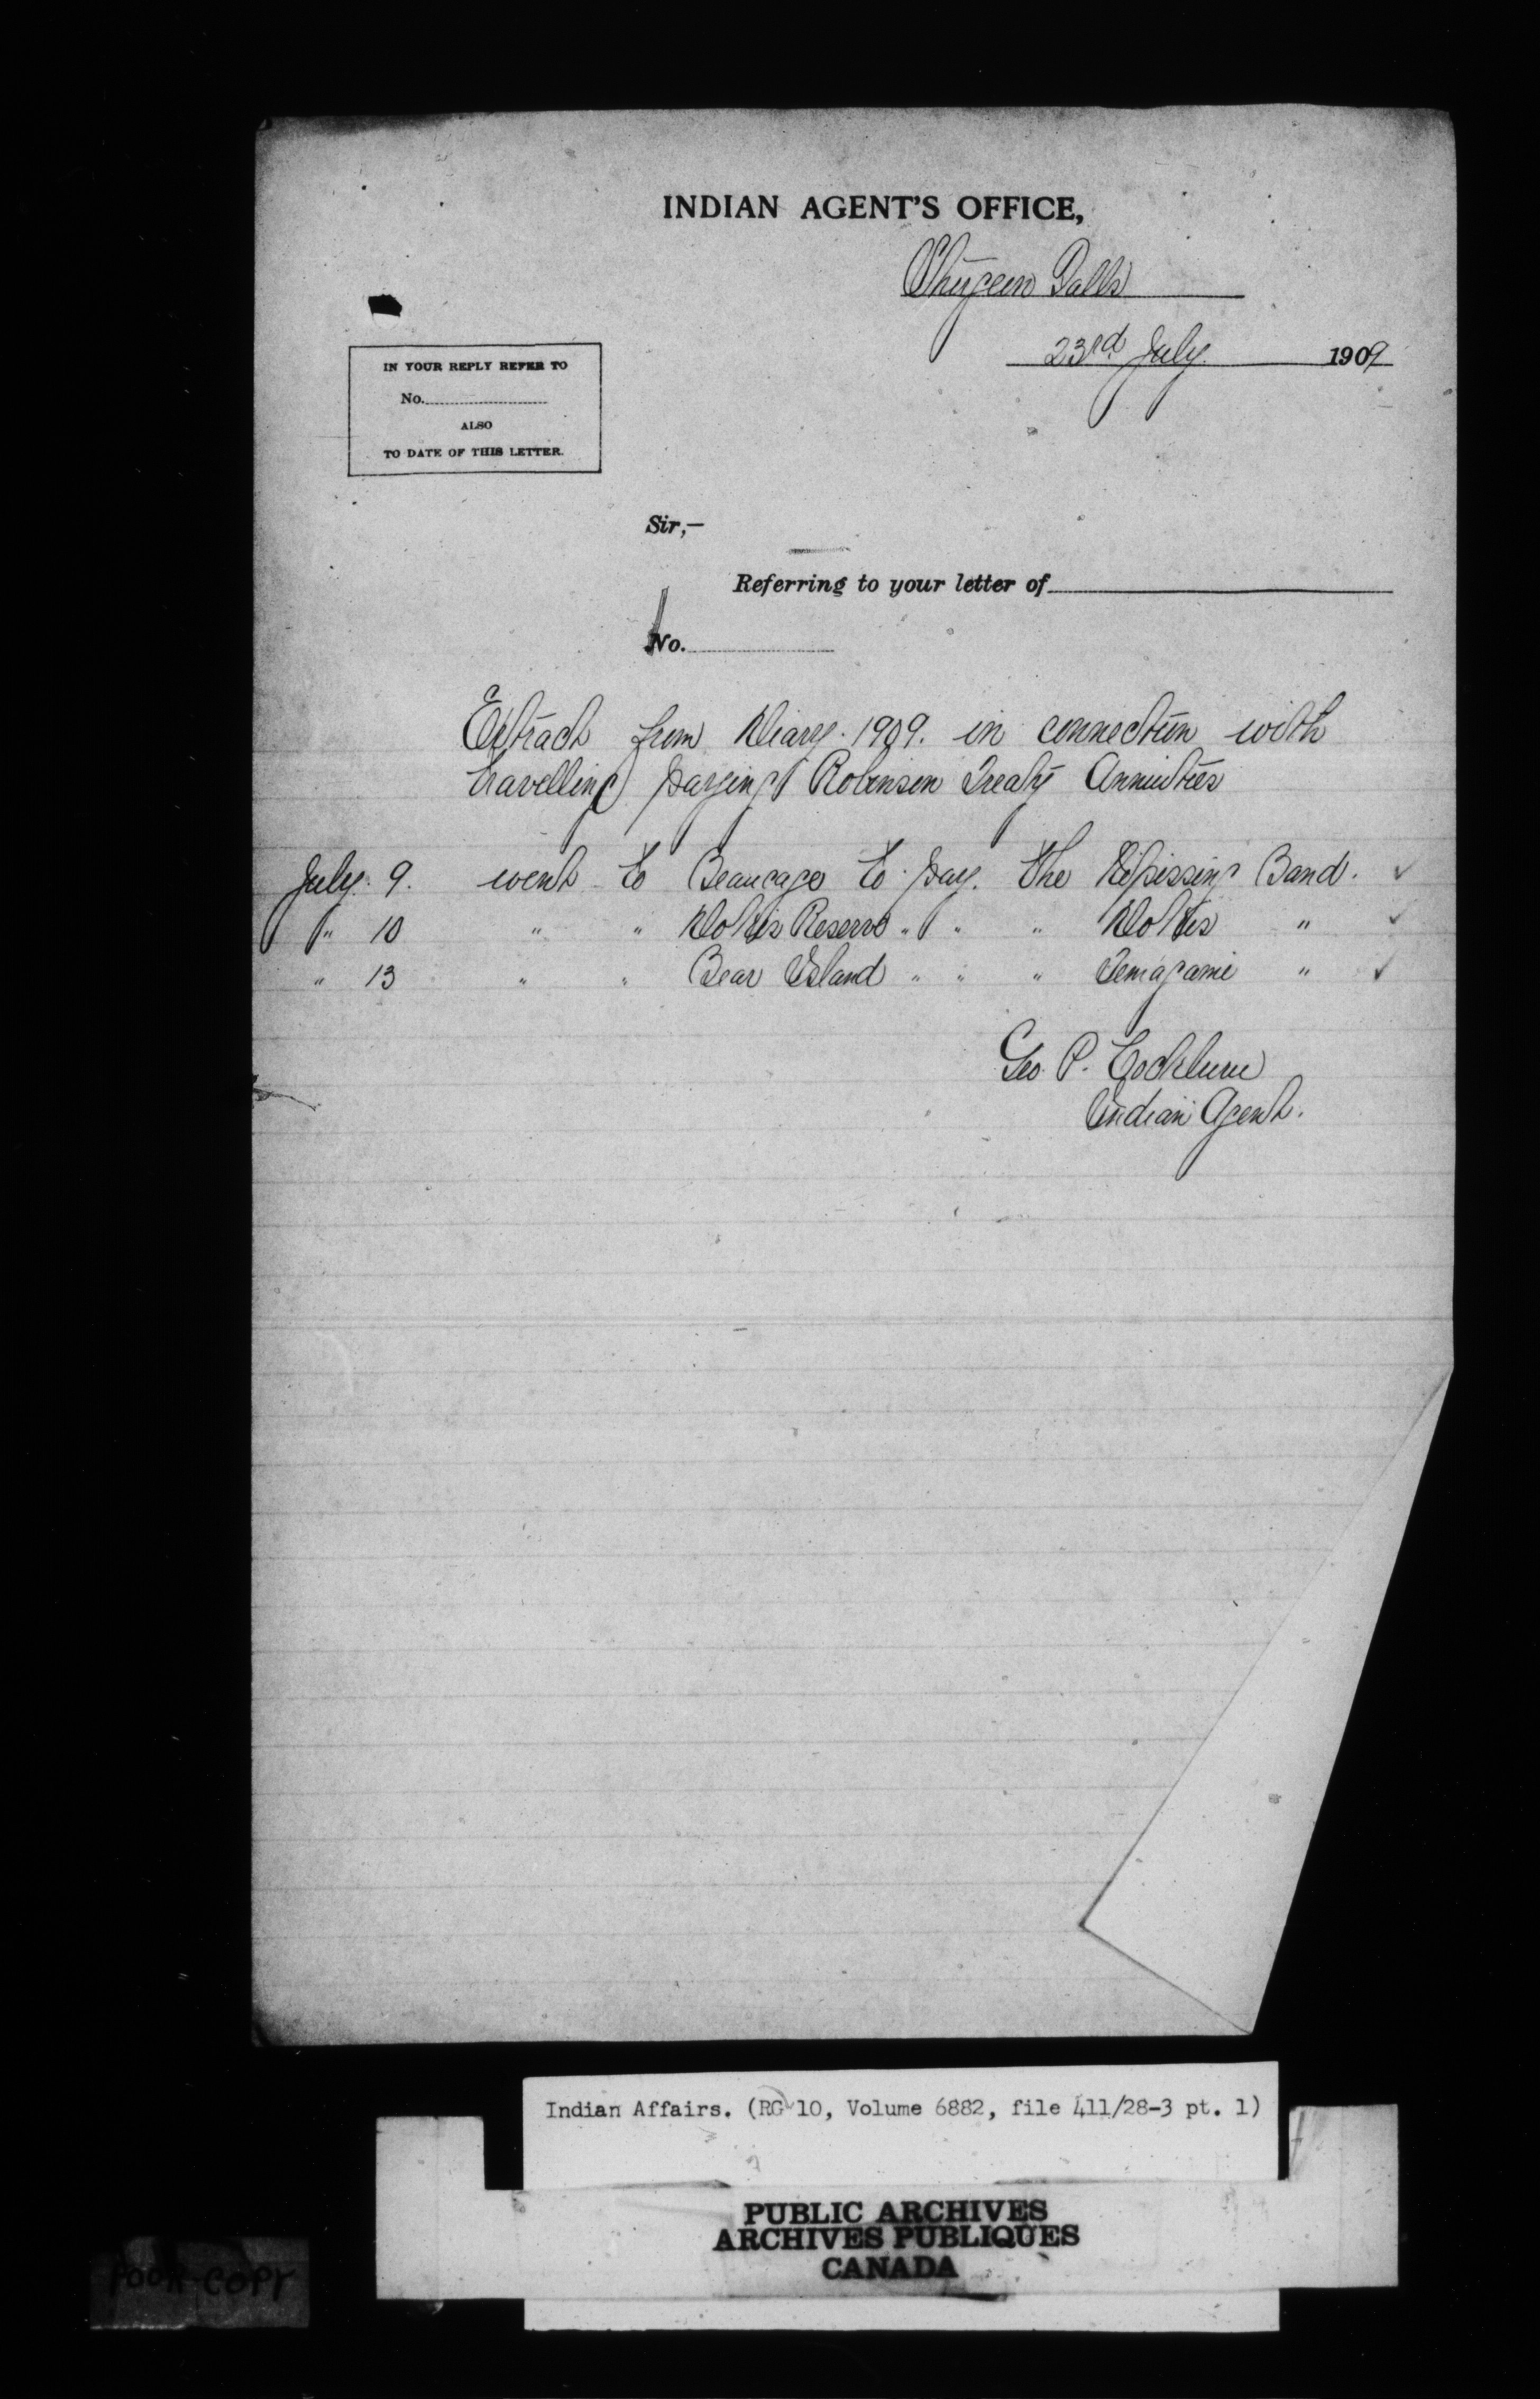 INDIAN AGENT'S OFFICE,
Sturgeon Falls
23rd July 1909
IN YOUR REPLY REFER TO
No.
ALSO
TO DATE OF THIS LETTER.
Sir,—
Referring to your letter of
No.
Extract from Diary. 1909. in connection with
travelling paying Robinson Treaty Annuities
July. 9. went to Beaucage to pay. the Nipissing Band. ✓
" 10 " " Dokis Reserve " " " Dokis " ✓
" 13 " " Bear Island " " " Temagami " ✓
Geo. P. Cockburn
Indian Agent.
Indian Affairs. (RG 10, Volume 6882, file 411/28-3 pt. 1)
PUBLIC ARCHIVES
ARCHIVES PUBLIQUES
CANADA
POOR COPY